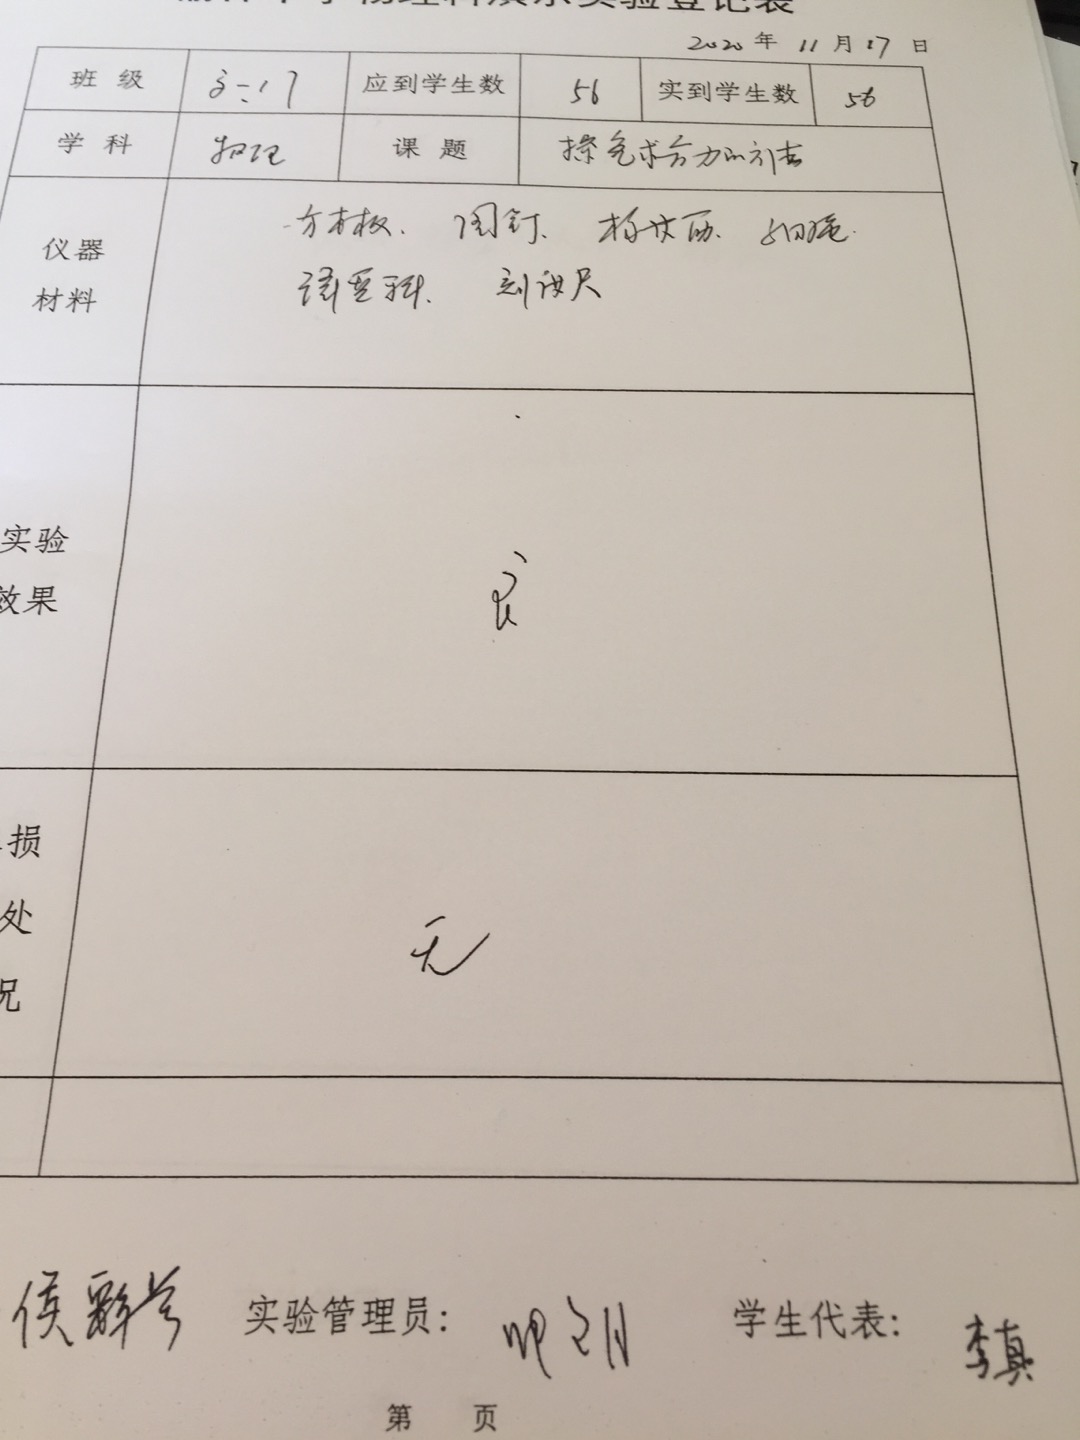 物理科演示实验登记表
2020 年 11 月 17 日
班级 高一17 应到学生数 56 实到学生数 56
学科 物理 课题 探究求合力的方法
仪器 方木板、图钉、 细绳
材料 刻度尺
实验
效果 良
损
处 无
况
侯 实验管理员: 学生代表: 李真
第 页